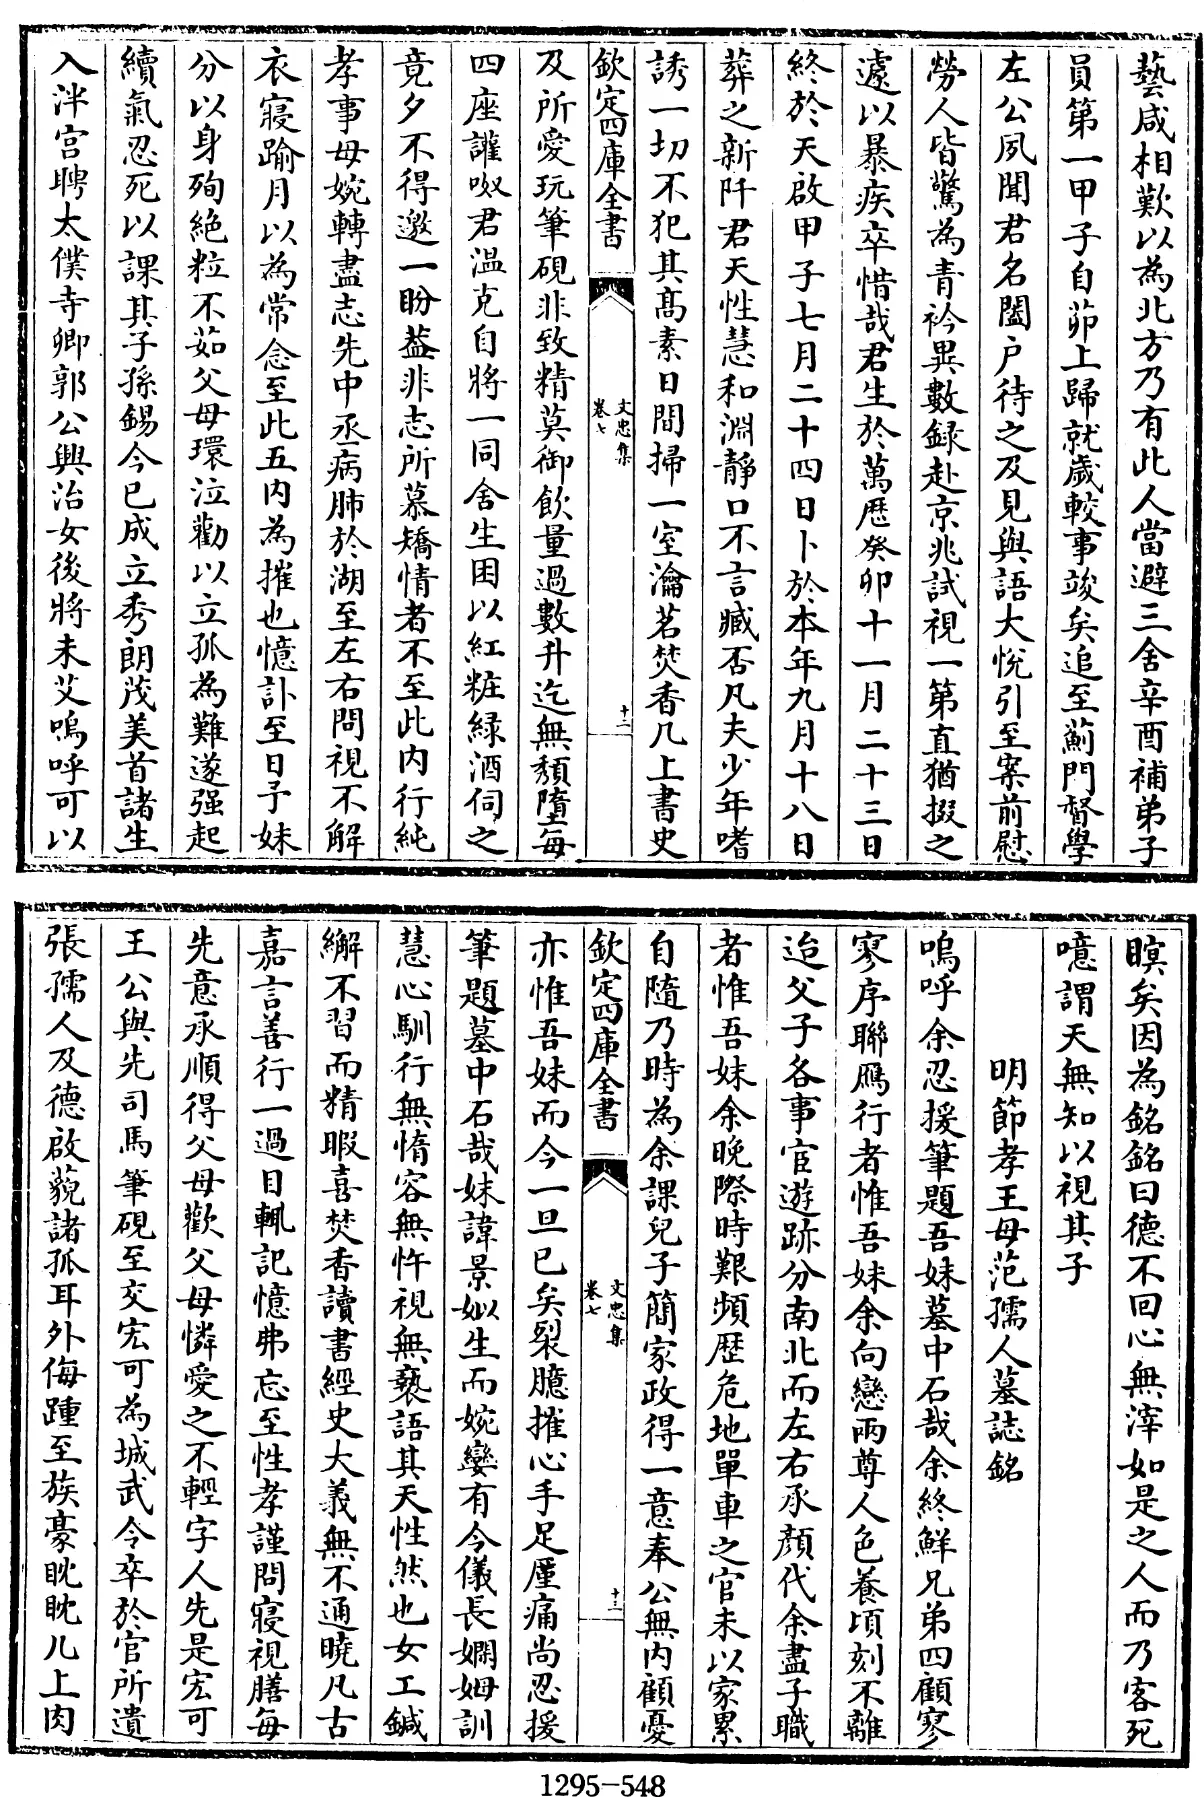 藝咸相歎以為北方乃有此人當避三舍辛酉補弟子
員第一甲子自茆上歸就歲較事竣矣追至薊門督學
左公夙聞君名闔户待之及見與語大悅引至案前慰
勞人皆驚為青衿異數録赴京兆試視一第直猶掇之
遽以暴疾卒惜哉君生於萬歴癸卯十一月二十三日
終於天啟甲子七月二十四日卜於本年九月十八日
葬之新阡君天性慧和淵靜口不言臧否凡夫少年嗜
誘一切不犯其髙素日間掃一室瀹茗焚香几上書史
欽定四庫全書
文忠集
卷七
十二
及所愛玩筆硯非致精莫御飲量過數升迄無頽墮每
四座讙呶君温克自將一同舍生困以紅粧緑酒伺之
竟夕不得邀一盼葢非志所慕矯情者不至此内行純
孝事母婉轉盡志先中丞病肺於湖至左右問視不解
衣寢踰月以為常念至此五内為摧也憶訃至日予妹
分以身殉絶粒不茹父母環泣勸以立孤為難遂强起
續氣忍死以課其子孫錫今已成立秀朗茂美首諸生
入泮宫聘太僕寺卿郭公興治女後將未艾嗚呼可以
瞑矣因為銘銘曰德不回心無滓如是之人而乃客死
噫謂天無知以視其子
明節孝王母范孺人墓誌銘
嗚呼余忍援筆題吾妹墓中石哉余終鮮兄弟四顧寥
寥序聯鴈行者惟吾妹余向戀兩尊人色養頃刻不離
迨父子各事宦遊跡分南北而左右承顔代余盡子職
者惟吾妹余晚際時艱頻歴危地單車之官未以家累
自隨乃時為余課兒子簡家政得一意奉公無内顧憂
欽定四庫全書
文忠集
卷七
十三
亦惟吾妹而今一旦已矣裂臆摧心手足厪痛尚忍援
筆題墓中石哉妹諱景姒生而婉孌有令儀長嫻姆訓
慧心馴行無惰容無忤視無褻語其天性然也女工鍼
黹不習而精暇喜焚香讀書經史大義無不通曉凡古
嘉言善行一過目輒記憶弗忘至性孝謹問寢視膳每
先意承順得父母歡父母憐愛之不輕字人先是宏可
王公與先司馬筆硯至交宏可為城武令卒於官所遺
張孺人及德啟藐諸孤耳外侮踵至族豪眈眈几上肉
1295-548